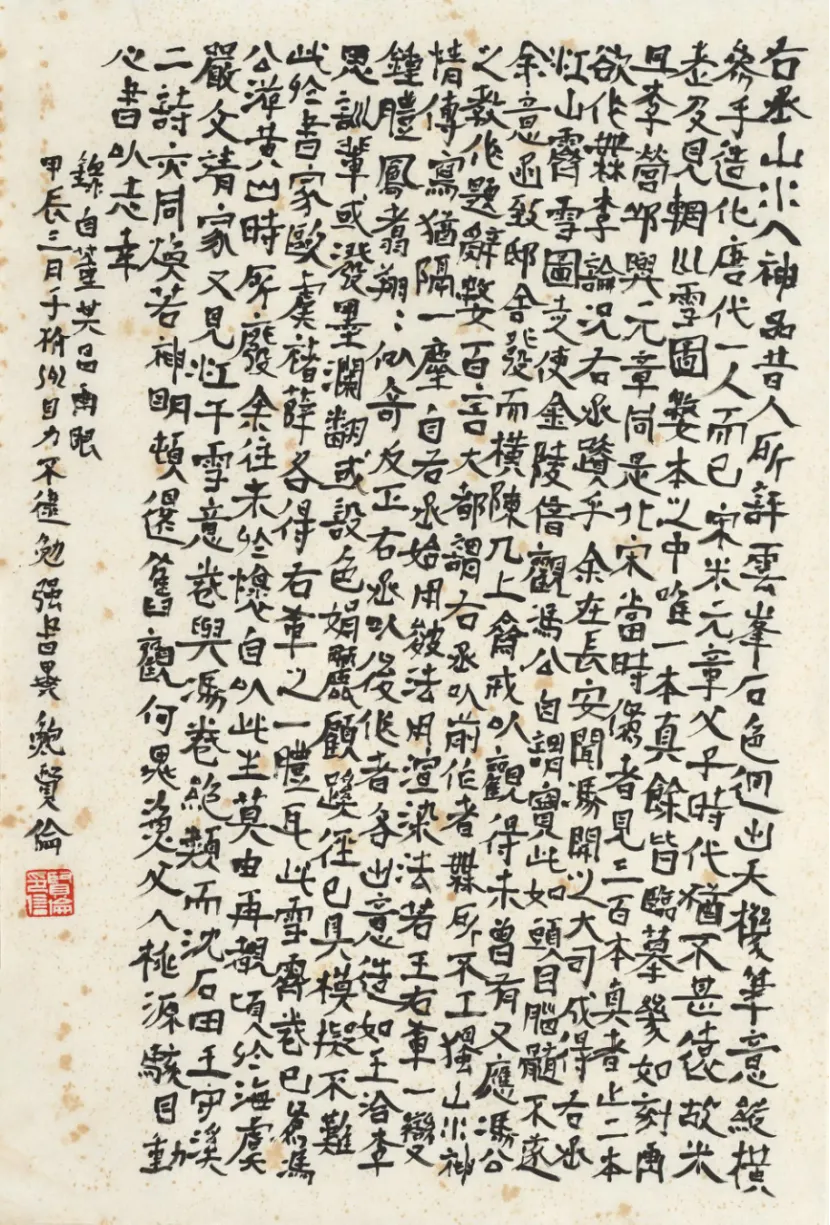 右丞山水入神品昔人所評雲峯石色迥出天機筆意縱橫
參乎造化唐代一人而已宋米元章父子時代猶不甚遠故米
老及見輞川雪圖數本之中唯一本真餘皆臨摹幾如刻畫
且李營邱與元章同是北宋當時僞者見三百本真者止二本
欲作無李論況右丞蹟乎余在長安聞馮開之大司成得右丞
江山霽雪圖走使金陵借觀馮公自謂寶此如頭目腦髓不逆
余意函致邸舍發而橫陳几上齋戒以觀得未曾有又應馮公
之教作題辭數百言大都謂右丞以前作者無所不工獨山水神
情傳寫猶隔一塵自右丞始用皴法用渲染法若王右軍一變
鍾體鳳翥翔:似奇反正右丞以後作者各出意造如王洽李
思訓輩或潑墨瀾翻或設色娟麗顧蹊徑已具模擬不難
此於書家歐虞褚薛各得右軍之一體耳此雪霽卷已爲馮
公游黃山時所廢余往來於懷自以此生莫由再覩頃於海虞
嚴文靖家又見江干雪意卷與馮卷絕類而沈石田王守溪
二詩亦同煥若神明頓還舊觀何異漁父入桃源駭目動
心書以志幸
錄自董其昌畫眼
甲辰三日手術後目力不逮勉強書畢鮑賢倫
賢倫印信